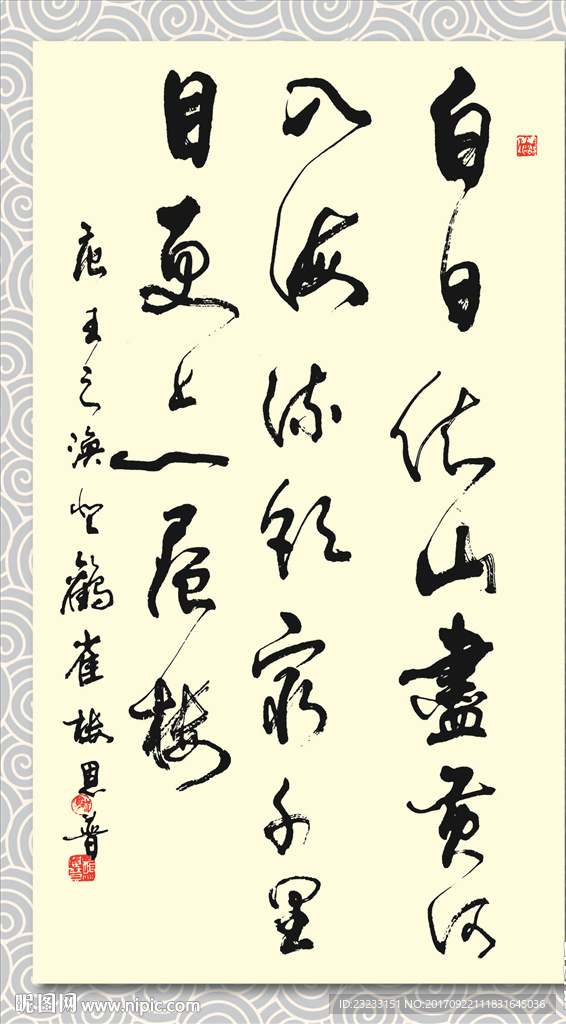 白日依山盡黄河
入海流欲窮千里
目更上一層樓
唐王之渙登鸛雀樓 思普
昵图网 www.nipic.com
ID:23233151 NO:20170922111831645036